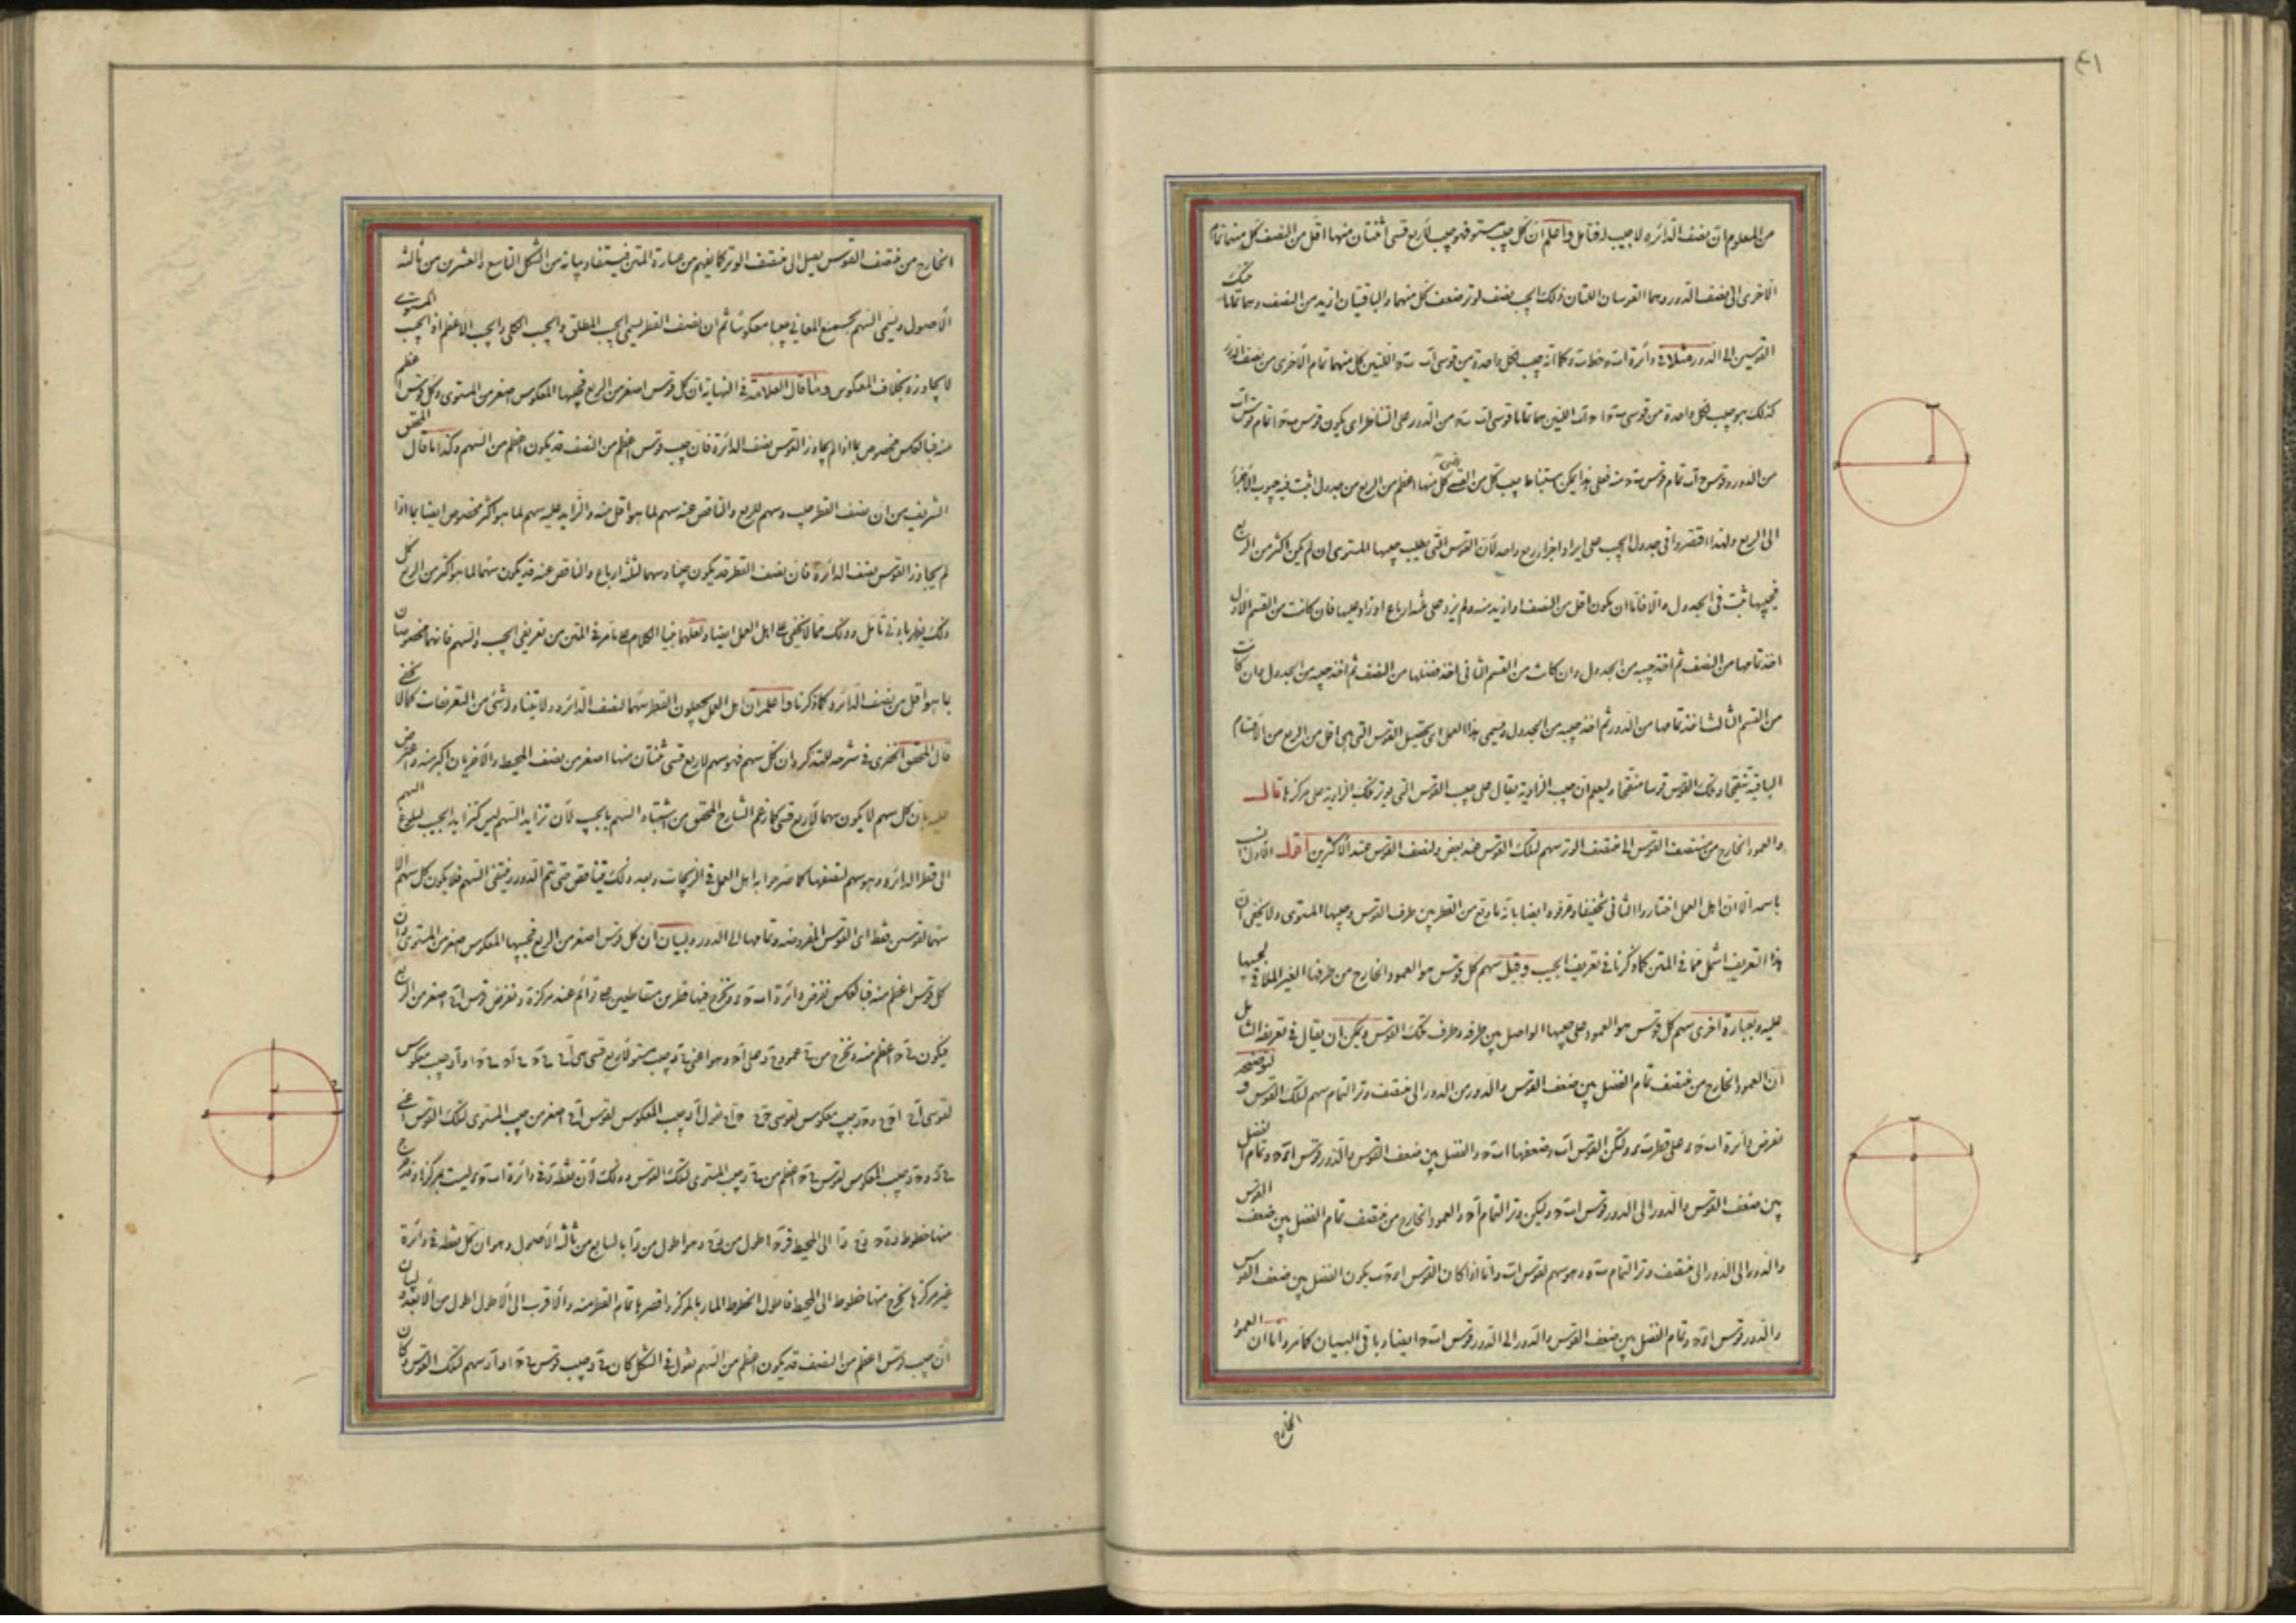 ٤١
من المعلوم ان نصف الدائره لا جيب له فتامل واعلم ان كل جيب مستو فهو جيب لاربع قسى اثنتان منها اقل من النصف كل منهما تمام
الاخرى الى نصف الدور وهما القوسان اللتان ذلك الجيب نصف لوتر ضعف كل منهما والباقيتان ازيد من النصف وهما تماما تينك
القوسين الى الدور مثلا فى دائرة ا ب ح د خط ب ه كما انه جيب لكل واحدة من قوسى ا ب ب ح اللتين كل منهما تمام الاخرى من نصف الدور
كذلك هو جيب لكل واحدة من قوسى اللتين هما تماما قوسى ا ب ب ح من الدور على التناظر اى يكون قوس تمام قوس ا ب
من الدور وقوس تمام قوس ب ح منه فعلى هذا يمكن استنباط جيب كل من القسى التى كل منها اعظم من الربع من جدول اثبت فيه جيوب الاجزاء
الى الربع ولهذا اقتصروا فى جدول الجيب على ايراد اجزاء ربع واحد لان القوس التى يطلب جيبها المستوى ان لم يكن اكثر من الربع
فجيبها ثبت فى الجدول والا فاما ان يكون اقل من النصف او ازيد منه ولم يزد على ثلثه ارباع او زاد عليها فان كانت من القسم الاول
اخذ تمامها من النصف ثم اخذ جيبه من الجدول وان كانت من القسم الثانى اخذ فضلها من النصف ثم اخذ جيبه من الجدول وان كانت
من القسم الثالث اخذ تمامها من الدور ثم اخذ جيبه من الجدول ويسمى هذا العمل اى تحصيل القوس التى هى اقل من الربع من الاقسام
الباقية تنقيحا وتلك القوس قوسا منقحا وليعلم ان جيب الزاوية يقال على جيب القوس التى يوتر تلك الزاوية على مركزها قال
والعمود الخارج من منتصف القوس الى منتصف الوتر سهم لتلك القوس عند بعض ولنصف القوس عند الاكثرين اقول الاول انسب
باسمه الا ان اهل العمل اختاروا الثانى تخفيفا وعرفوه ايضا بانه ما وقع من القطر بين طرف القوس وجيبها المستوى ولا يخفى ان
هذا التعريف اشمل مما فى المتن كما ذكرنا فى تعريف الجيب وقيل سهم كل قوس هو العمود الخارج من طرفها الغير الملاقى لجيبها
عليه وبعبارة اخرى سهم كل قوس هو العمود على جيبها الواصل بين طرفه وطرف تلك القوس ويمكن ان يقال فى تعريفه الشامل
ان العمود الخارج من منتصف تمام الفضل بين ضعف القوس والدور من الدور الى منتصف وتر التمام سهم لتلك القوس ولتوضيحه
نفرض دائرة ا ب ح د على قطر ب د ولتكن القوس ا ب وضعفها ا ب ح والفضل بين ضعف القوس والدور قوس ا د ح وتمام الفضل
بين ضعف القوس والدور الى الدور قوس ا ب ح وليكن وتر التمام ا ح والعمود الخارج من منتصف تمام الفضل بين ضعف القوس
والدور الى الدور الى منتصف وتر التمام ب ه وهو سهم لقوس ا ب واما اذا كان القوس ا د ح ب يكون الفضل بين ضعف القوس
والدور قوس ا د ح وتمام الفضل بين ضعف القوس والدور الى الدور قوس ا ب ح ايضا وباقى البيان كما مر واما ان العمود
الخارج
الخارج من منتصف القوس يصل الى منتصف الوتر كما يفهم من عبارة المتن فيستفاد بيانه من الشكل التاسع والعشرين من ثالثه
الاصول ويسمى السهم بجميع المعانى جيبا معكوسا ثم ان نصف القطر يسمى الجيب المطلق والجيب الكلى والجيب الاعظم اذ الجيب المستوى
لا يجاوزه بخلاف المعكوس وما قال العلامة فى النهاية ان كل قوس اصغر من الربع فجيبها المعكوس اصغر من المستوى وكل قوس اعظم
منه فبالعكس مخصوص بما اذا لم يجاوز القوس نصف الدائرة فان جيب قوس اعظم من النصف قد يكون اعظم من السهم وكذا ما قال المحقق
الشريف من ان نصف القطر جيب وسهم للربع والناقص عنه سهم لما هو اقل منه والزايد عليه سهم لما هو اكثر مخصوص ايضا بما اذا
لم يجاوز القوس نصف الدائرة فان نصف القطر قد يكون جيبا وسهما لثلثه ارباع والناقص عنه قد يكون سهما لما هو اكثر من الربع كل
ذلك يظهر بادنى تامل وذلك مما لا يخفى على اهل العمل ايضا ولعلهما بنيا الكلام على ما مر فى المتن من تعريفى الجيب والسهم فانهما مخصوصان
بما هو اقل من نصف الدائره كما ذكرنا واعلم ان اهل العمل يجعلون القطر سهما لنصف الدائره ولا يتناوله شئ من التعريفات كما لا يخفى
قال المحقق الخفرى فى شرحه للتذكره ان كل سهم فهو سهم لاربع قسى ثنتان منها اصغر من نصف المحيط والاخريان اكبر منه واعترض
عليه بان كل سهم لا يكون سهما لاربع قسى كما زعم الشارح المحقق من اشتباه السهم بالجيب لان تزايد السهم ليس كتزايد الجيب لبلوغ السهم
الى قطر الدائره وهو سهم لنصفها كما صرحوا به اهل العمل فى الزيجات وبعد ذلك يتناقص حتى يتم الدور وينتفى السهم فلا يكون كل سهم الا
سهما لقوسين فقط اى القوس المفروضه وتمامها الى الدور ولبيان ان كل قوس اصغر من الربع فجيبها المعكوس اصغر من المستوى وان
كل قوس اعظم منه فبالعكس نفرض دائرة ونخرج فيها قطرين متقاطعين على قوائم عند مركزه ونفرض قوس اصغر من الربع
فيكون اعظم منه ونخرج من عمود على وهو اعنى جيب مستو لاربع قسى هى جيب معكوس
لقوسى جيب معكوس لقوسى نقول جيب المعكوس لقوس اصغر من جيب المستوى لتلك القوس اعنى
جيب المعكوس لقوس اعظم من جيب المستوى لتلك القوس وذلك لان نقطه فى دائرة ليست بمركزها وقد خرج
منها خطوط الى المحيط اطول من وهو اطول من بالسابع من ثالثه الاصول وهو ان كل نقطه فى دائرة
غير مركزها يخرج منها خطوط الى المحيط فاطول الخطوط المار بالمركز واقصرها تمام القطر منه والاقرب الى الاطول اطول من الابعد ولبيان
ان جيب قوس اعظم من النصف قد يكون اعظم من السهم نقول فى الشكل كان جيب قوس سهم لتلك القوس وكان